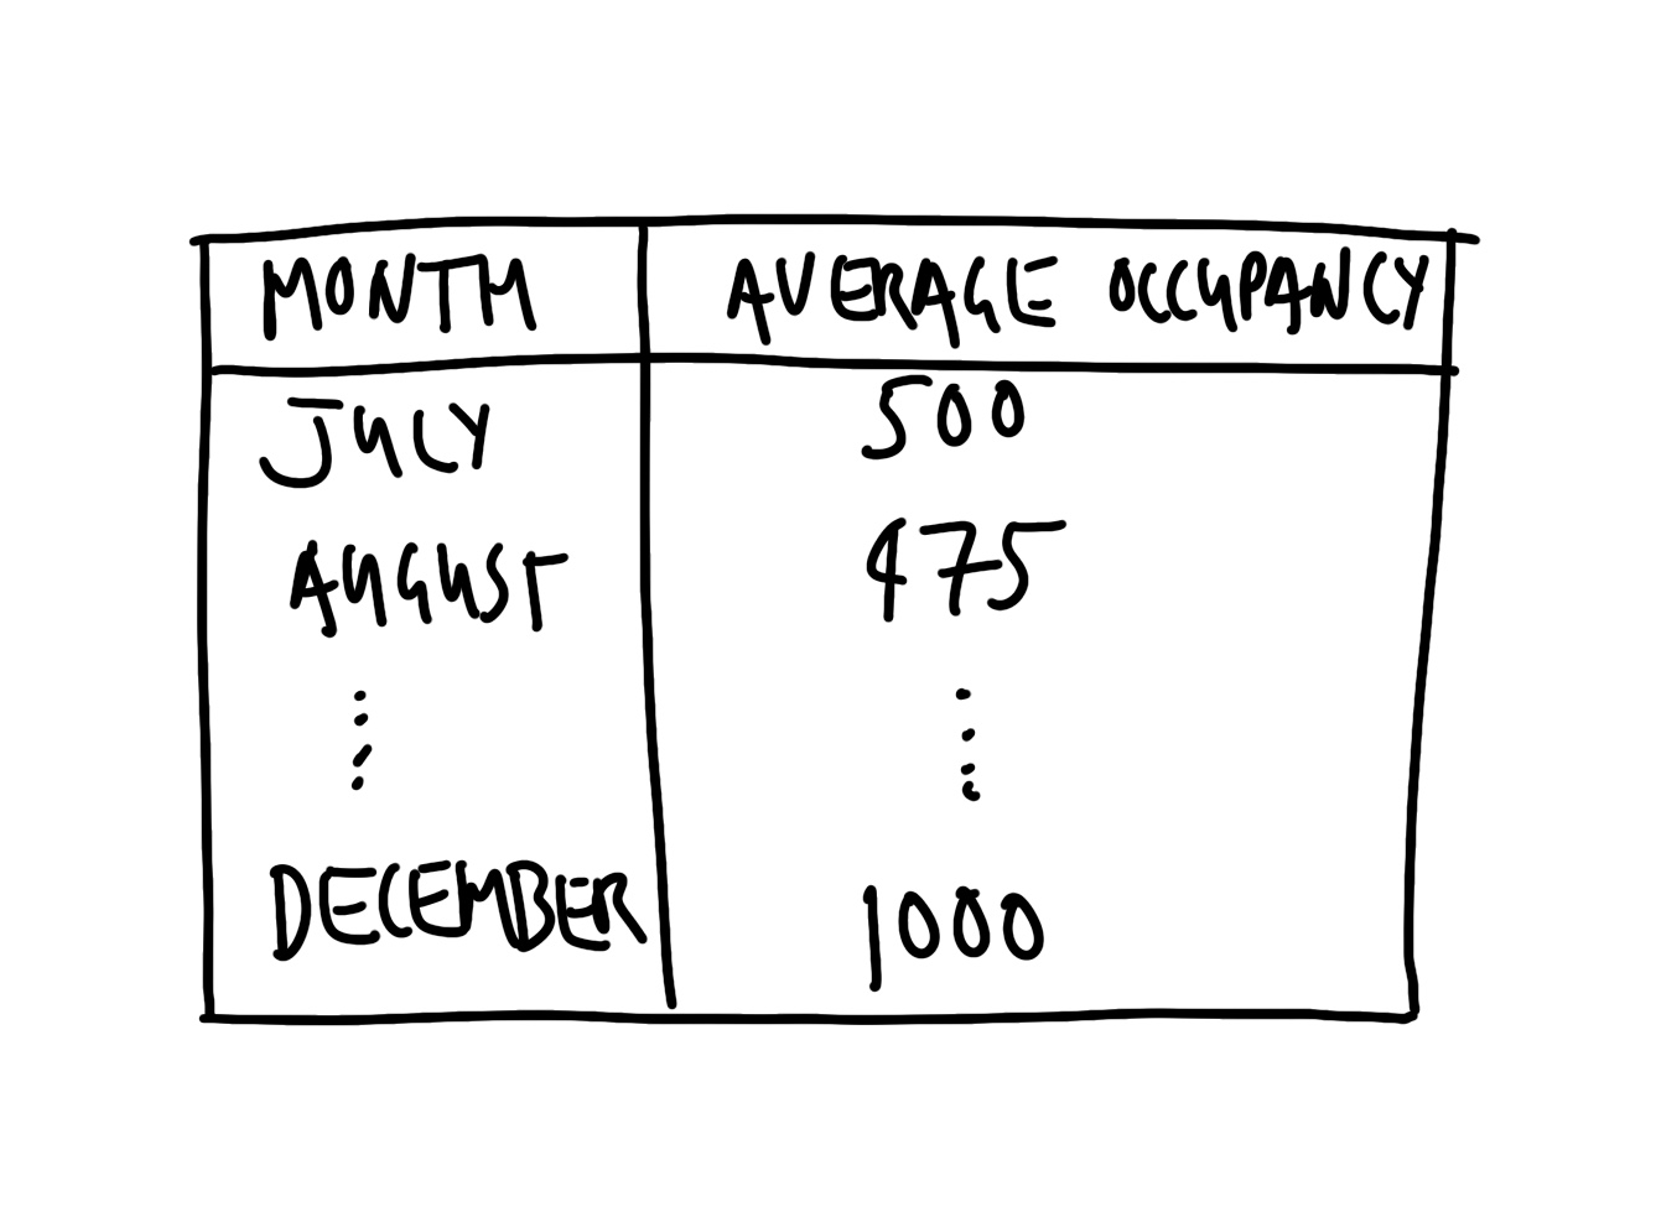 MONTH AVERAGE OCCUPANCY
JULY 500
AUGUST 475
⋮ ⋮
DECEMBER 1000